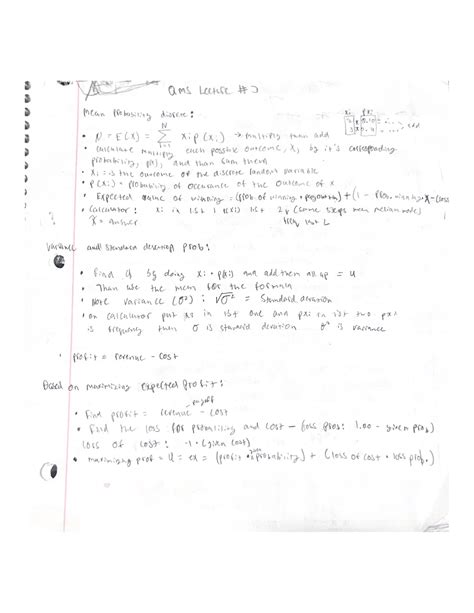 QMS Lecture #
Mean Probability discrete:
xi pxi
• = E(X) = N Σ i=1 xi p(xi) → multiply than add
• calculate multiply each possible outcome, Xi by it's corresponding
probability, p(xi), and than sum them
• Xi = is the outcome of the discrete random variable
• p(xi) = probability of occurance of the outcome of x
• Expected value of winning = (prob of winning • ) + (1 - prob. winning) x - (loss
• calculator: xi in list 1 p(xi) list 2 (same steps mean median mode)
x̄ = answer freq list L
variance and standard prob:
• Find by doing xi • p(xi) and add them all up = u
• Than use the mean for the formula
• Note variance (σ²) ; √σ² = Standard deviation
• on calculator put xi in list one and pxi in list two pxi
is frequency then σ is standard deviation σ² is variance
• profit = revenue - cost
Based on maximizing expected profit:
payoff
• find profit = revenue - cost
• find the loss for probability and cost - (loss prob: 1.00 - given prob)
loss of cost: -1 • (given cost)
• maximizing prof = u = ex = (profit • probability) + (loss of cost • loss prob.)